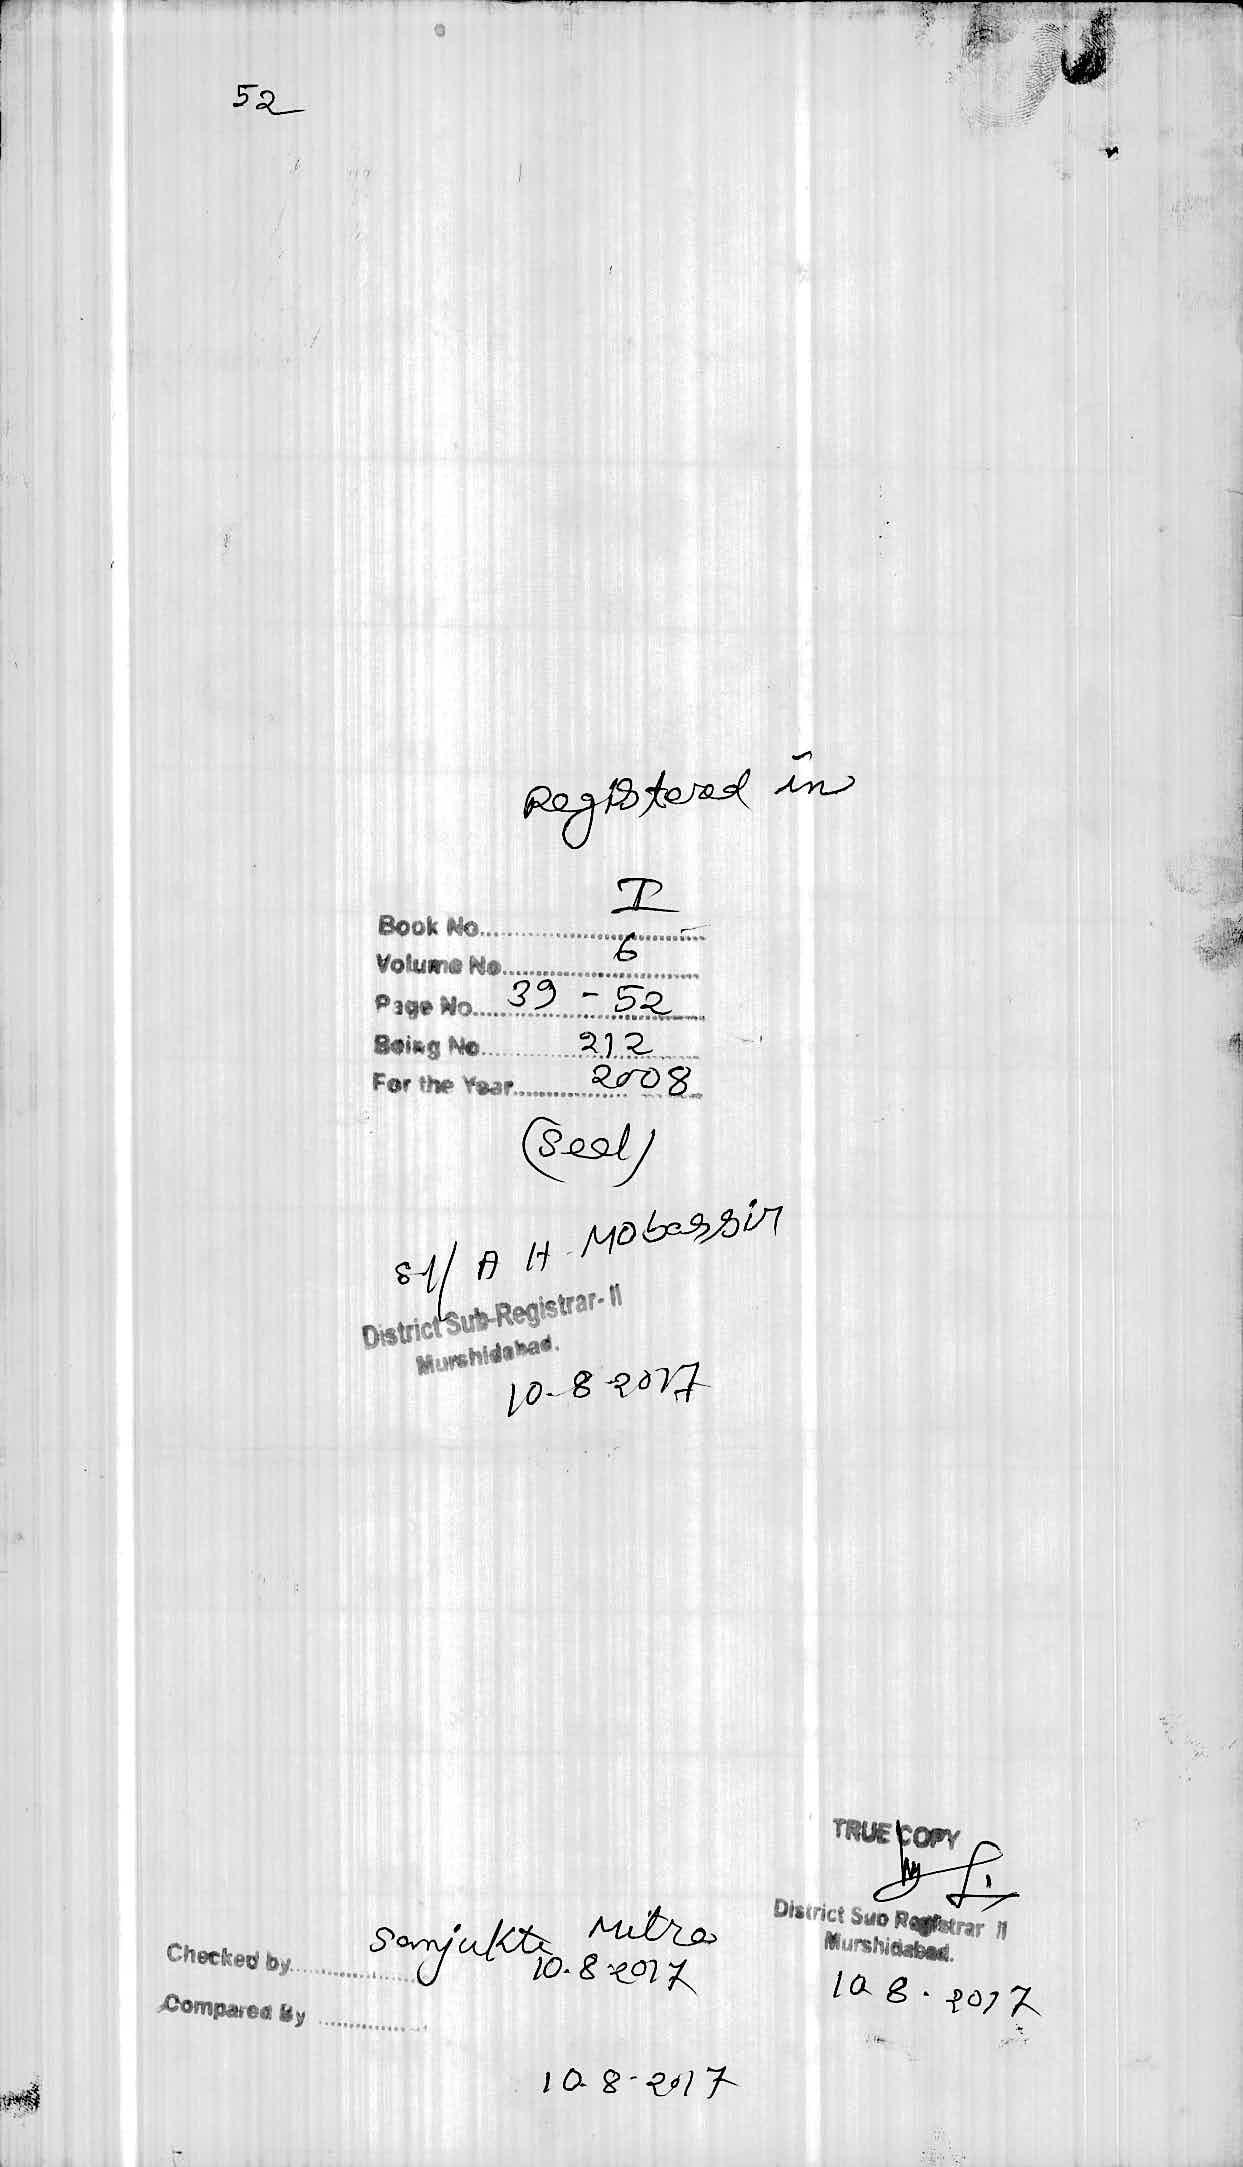 52
Registered in
Book No. I
Volume No. 6
Page No. 39 - 52
Being No. 212
For the Year 2008
(Seal)
Sd/ A H. Mobassir
District Sub-Registrar-II
Murshidabad.
10-8-2017
TRUE COPY
District Sub Registrar II
Murshidabad.
10.8.2017
Checked by Sanjukta Mitra
10.8.2017
Compared By
10.8.2017